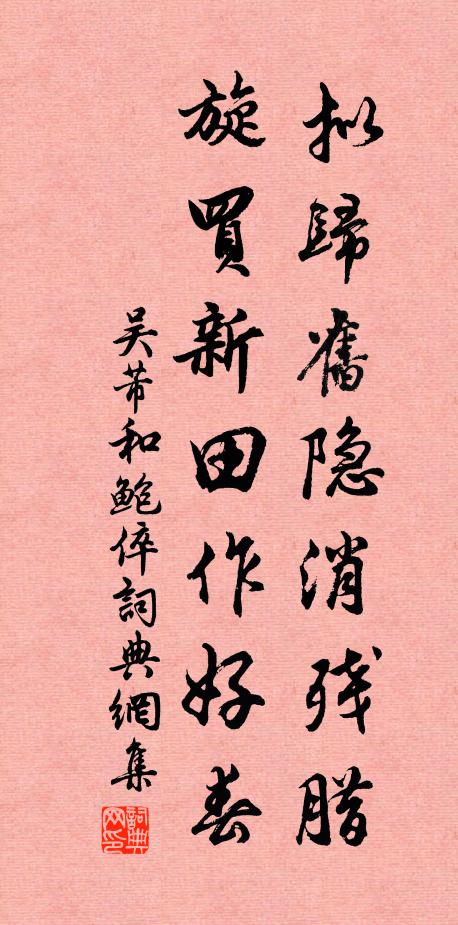 拟歸舊隐消残腊
旋買新田作好春
吴芾和鲍倅詞典網集
詞典网印